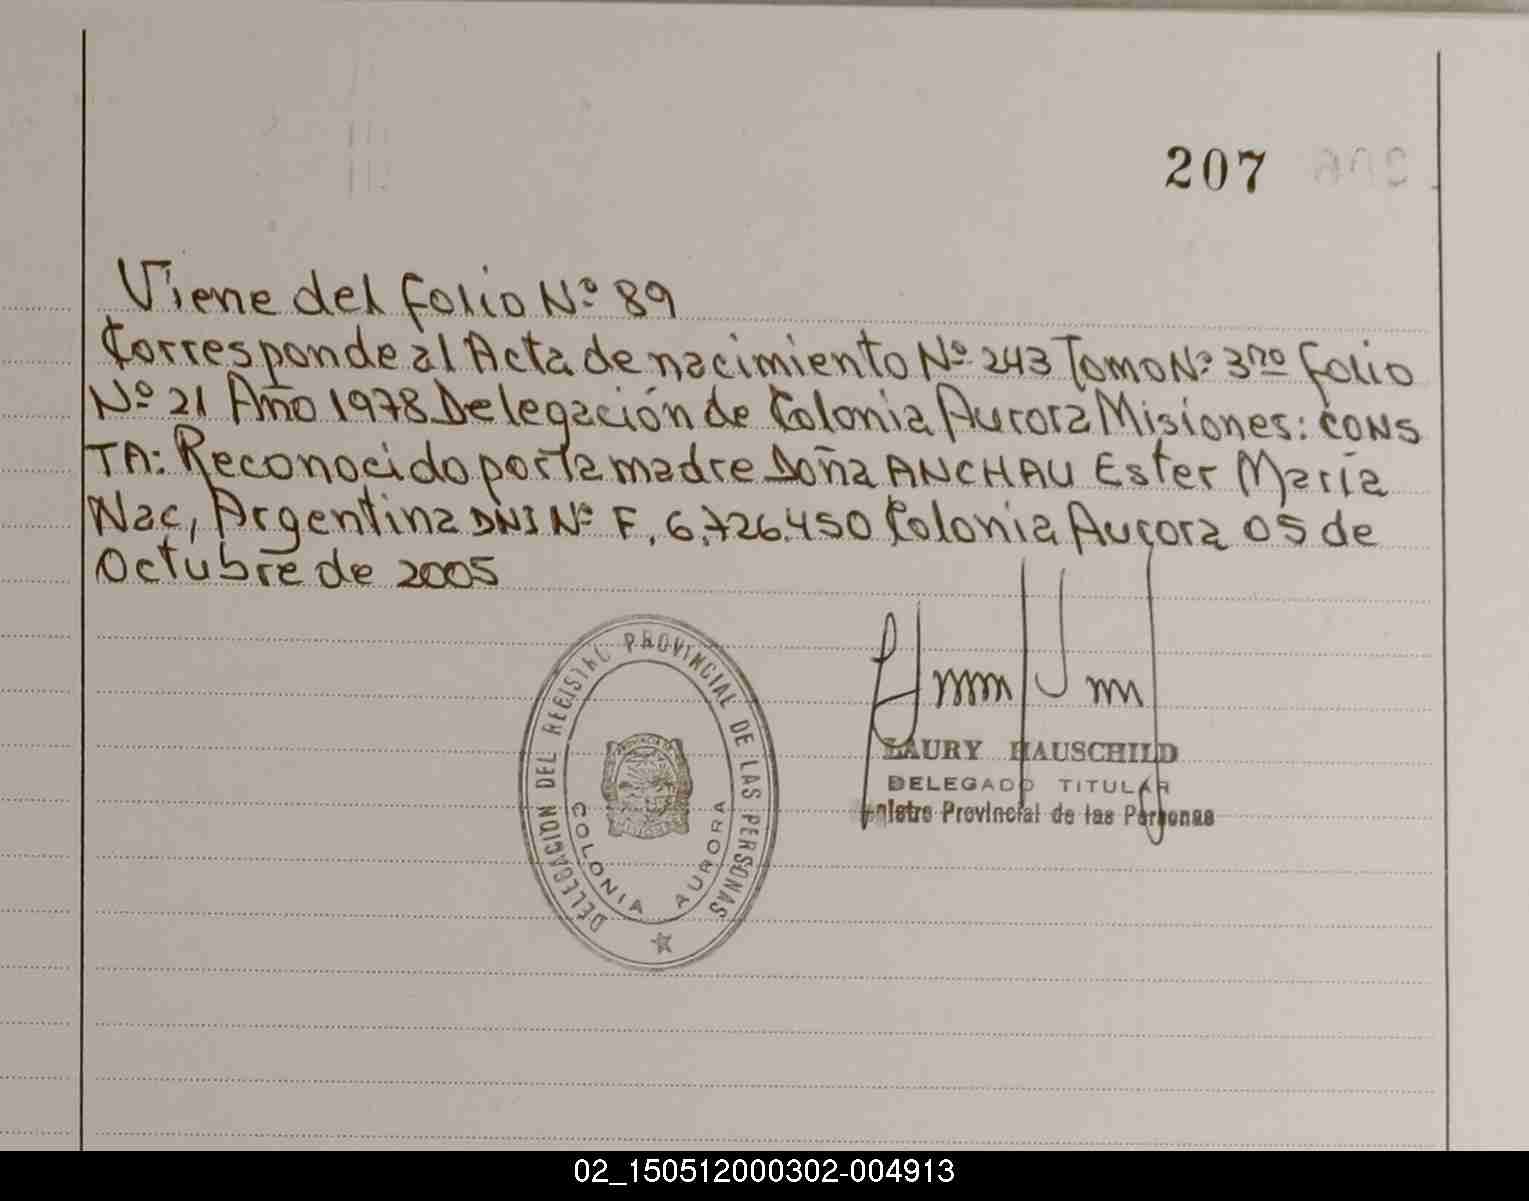 207
Viene del folio Nº 89
Corresponde al Acta de nacimiento Nº 243 Tomo Nº 3ro folio
Nº 21 Año 1978 Delegación de Colonia Aurora Misiones: CONS
TA: Reconocido por la madre Doña ANCHAU Ester María
Nac, Argentina DNI Nº F, 6.726.450 Colonia Aurora 05 de
Octubre de 2005
DELEGACION DEL REGISTRO PROVINCIAL DE LAS PERSONAS
COLONIA AURORA
LAURY HAUSCHILD
DELEGADO TITULAR
Provincial de las Personas
02_150512000302-004913